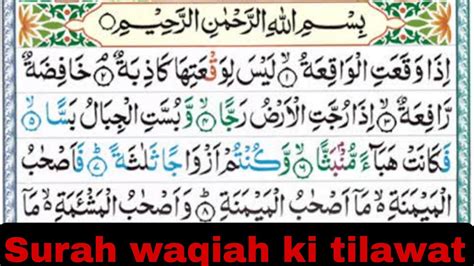 بِسْمِ اللهِ الرَّحْمٰنِ الرَّحِيْمِ ○
اِذَا وَقَعَتِ الْوَاقِعَةُ ۙ﴿۱﴾ لَيْسَ لِوَقْعَتِهَا كَاذِبَةٌ ۘ﴿۲﴾ خَافِضَةٌ
رَّافِعَةٌ ۙ﴿۳﴾ اِذَا رُجَّتِ الْاَرْضُ رَجًّا ۙ﴿۴﴾ وَّ بُسَّتِ الْجِبَالُ بَسًّا ۙ﴿۵﴾
فَكَانَتْ هَبَآءً مُّنْۢبَثًّا ۙ﴿۶﴾ وَّ كُنْتُمْ اَزْوَاجًا ثَلٰثَةً ؕ﴿۷﴾ فَاَصْحٰبُ
الْمَيْمَنَةِ ۙ۬ مَاۤ اَصْحٰبُ الْمَيْمَنَةِ ؕ﴿۸﴾ وَ اَصْحٰبُ الْمَشْـَٔمَةِ ۙ۬ مَاۤ
Surah waqiah ki tilawat